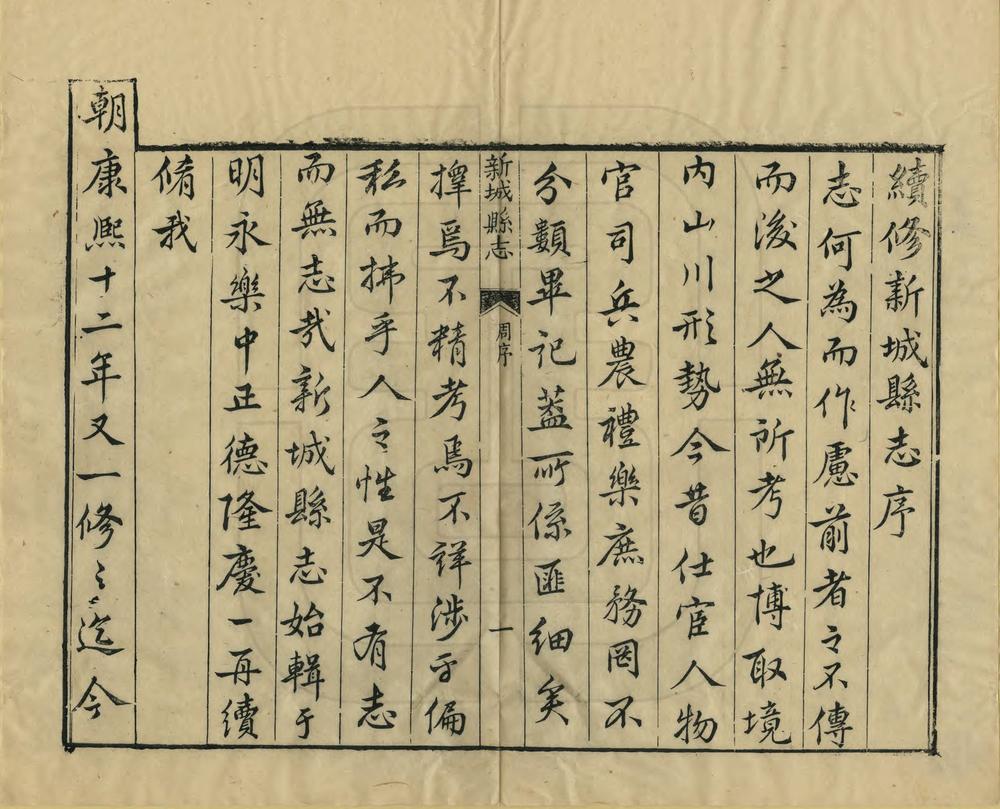 續修新城縣志序
志何為而作慮前者之不傳
而後之人無所考也博取境
内山川形勢今昔仕宦人物
官司兵農禮樂庶務罔不
分類畢記蓋所係匪細矣
新城縣志 周序 一
擇焉不精考焉不詳涉乎偏
私而拂乎人之性是不有志
而無志哉新城縣志始輯于
明永樂中正德隆慶一再續
脩我
朝康熙十二年又一修之迄今